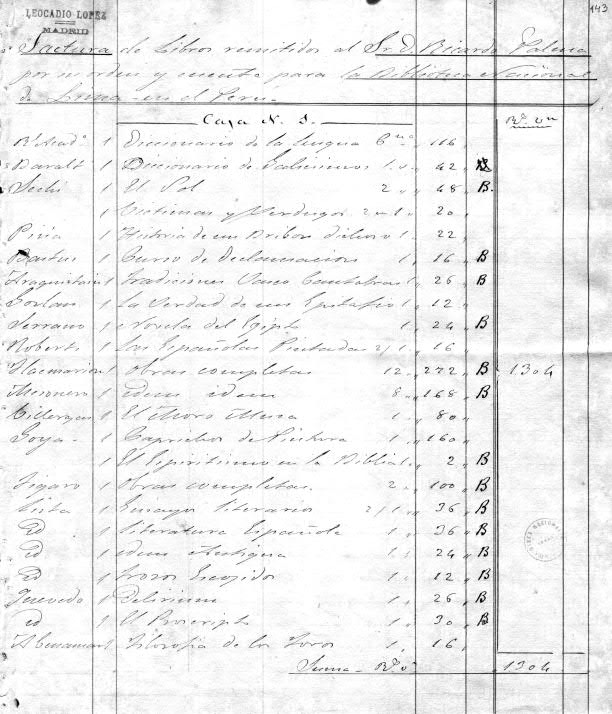 LEOCADIO LOPEZ
MADRID
143
Factura de Libros remitidos al Sr. D. Ricardo Palma
por su orden y cuenta para la Biblioteca Nacional
de Lima en el Peru.
Caja N. 1.
Diccionario de la lengua 116
Baralt 1 Diccionario de Galicismos 1 42
Sechi 1 El Sol 2 48 B.
1 Victimas y Verdugos 20
Piña 1 Historia de un Bribon dichoso 1 22
Bastus 1 Curso de Declamacion 1 16 B
Araquistain 1 Tradiciones Vasco Cantabras 1 26 B
1 La Verdad de un Epitafio 1 12
Serrano 1 Novela del Egipto 1 24 B
Robert 1 Las Españolas Pintadas 16
Flacmarion 1 Obras completas 12 272 B 1304
Mesonero 1 idem idem 8 168 B
1 El Moro Muza 1 80
Goya 1 Caprichos de 1 160
1 El Espiritismo en la Biblia 1 2 B
Figaro 1 Obras completas 2 100 B
Lista 1 Ensayos literarios 36 B
Id 1 Literatura Española 1 36 B
Id 1 idem Antigua 1 24 B
Id 1 Trozos Escojidos 1 12 B
Quevedo 1 Delirium 1 26 B
id 1 El Proscripto 1 30 B
Abenamar 1 Filosofia de los Toros 1 16
Suma 1304